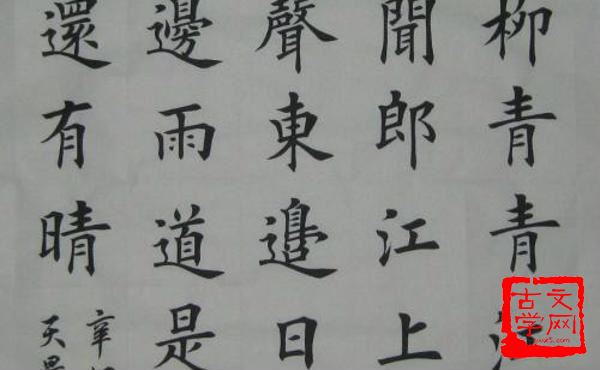 柳青青江
聞郎江上
聲東邉日
邊雨道是
還有晴
辛
天
古文
学网